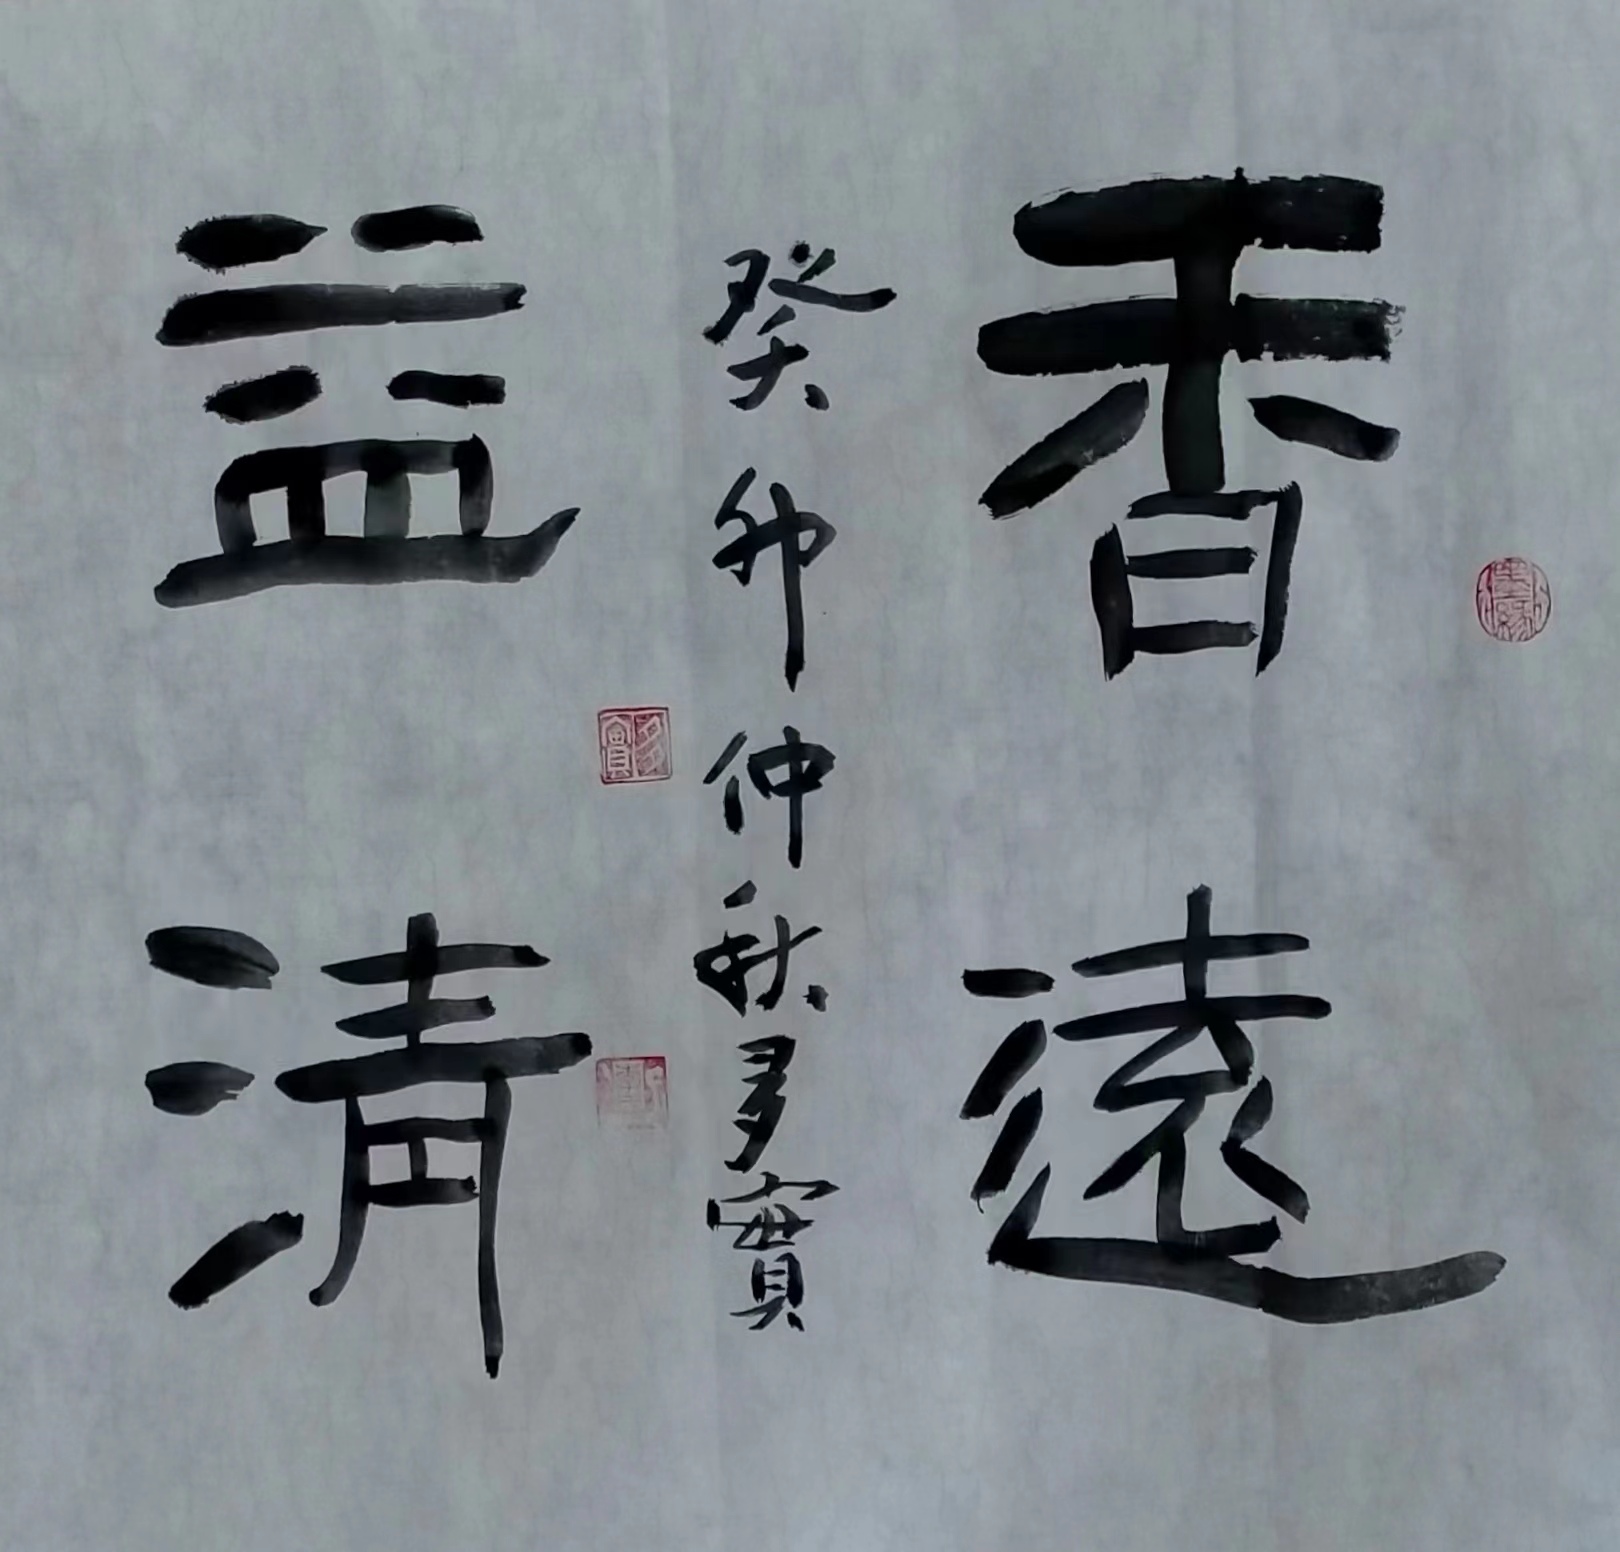 香遠
益清
癸卯仲秋多寶
多寶